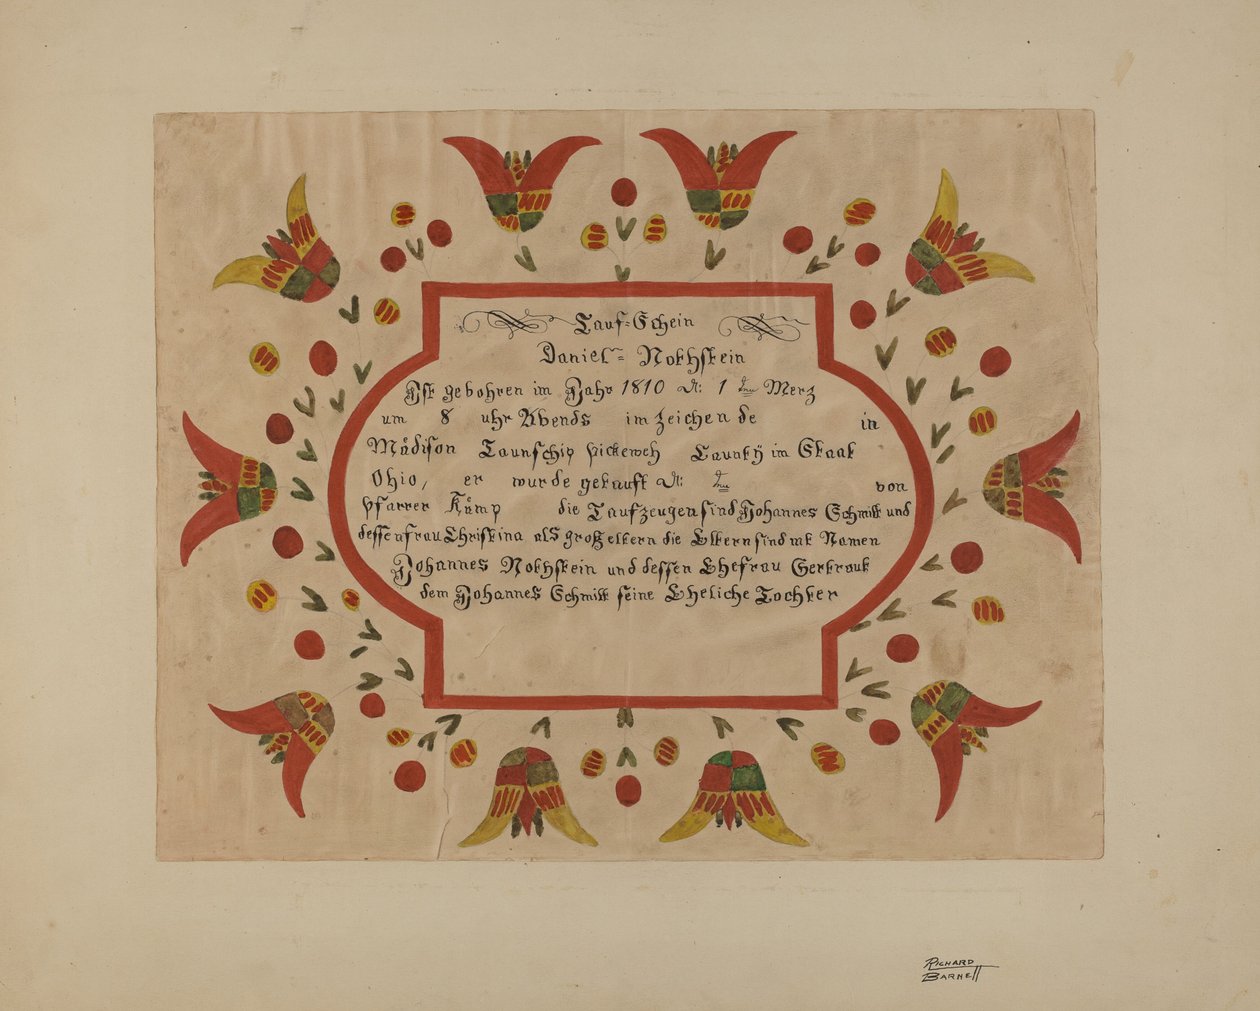 Tauf=Schein
Daniel= Nothstein
Ist gebohren im Jahr 1810 d: 1 tnu Merz
um 8 uhr Abends im zeichen de in
Mädison Taunschip pickeweh Caunty im Staat
Ohio, er wurde getauft d: tnu von
Pfarrer Kämp die Taufzeugen sind Johannes Schmitt und
dessen frau Christina als großeltern die Eltern sind mt Namen
Johannes Nothstein und dessen Ehefrau Gertraut
dem Johannes Schmitt seine Eheliche Tochter
RICHARD
BARNETT